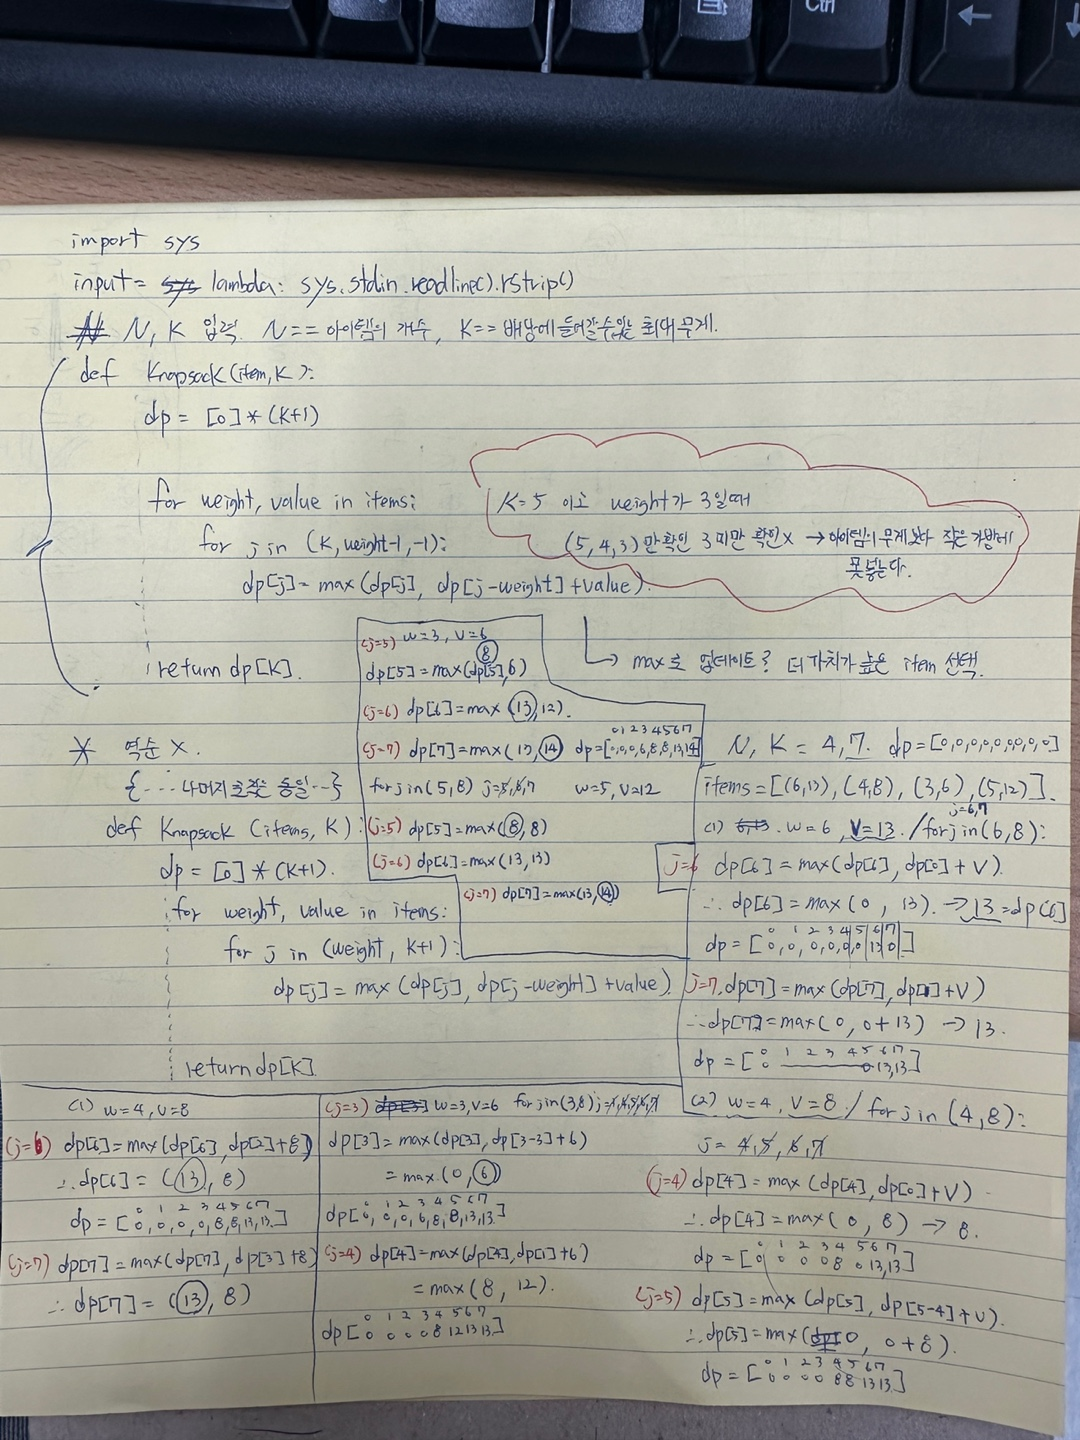 Ctrl
←
import sys
input = lambda: sys.stdin.readline().rstrip()
N, K 입력. N == 아이템의 개수, K == 배낭에 들어갈수있는 최대무게.
def Knapsack(item, K):
dp = [0] * (K+1)
for weight, value in items:
for j in (K, weight-1, -1):
dp[j] = max(dp[j], dp[j-weight] + value).
return dp[K].
K=5 이고 weight가 3일때
(5, 4, 3)만 확인 3 미만 확인 X → 아이템의 무게보다 작은 가방에
못넣는다.
↳ max로 업데이트? 더 가치가 높은 item 선택.
* 역순 X.
{ ... 나머지 코드는 동일 ... }
def Knapsack (items, K):
dp = [0] * (K+1).
for weight, value in items:
for j in (weight, K+1):
dp[j] = max (dp[j], dp[j-weight] + value)
return dp[K].
(j=5) w=3, v=6
8
dp[5] = max(dp[5], 6)
(j=6) dp[6] = max (13, 12).
0 1 2 3 4 5 6 7
(j=7) dp[7] = max(13, 14) dp=[0,0,0,6,8,8,13,14]
for j in (5, 8) j=5,6,7 w=5, v=12
(j=5) dp[5] = max(8, 8)
(j=6) dp[6] = max(13, 13)
(j=7) dp[7] = max(13, 14)
N, K = 4, 7. dp=[0,0,0,0,0,0,0,0]
items = [(6,13), (4,8), (3,6), (5,12)].
j=6,7
(1) w=6, V=13. / for j in (6, 8):
j=6 dp[6] = max(dp[6], dp[0] + V).
∴ dp[6] = max(0, 13). → 13 = dp[6]
0 1 2 3 4 5 6 7
dp = [0,0,0,0,0,0,13,0]
j=7. dp[7] = max(dp[7], dp[1] + V)
∴ dp[7] = max(0, 0+13) → 13.
0 1 2 3 4 5 6 7
dp = [0 0 13,13]
(2) w=4, V=8 / for j in (4, 8):
j = 4, 5, 6, 7
(j=4) dp[4] = max (dp[4], dp[0] + V)
∴ dp[4] = max(0, 8) → 8.
0 1 2 3 4 5 6 7
dp = [0 0 0 0 8 0 13,13]
(j=5) dp[5] = max (dp[5], dp[5-4] + v).
∴ dp[5] = max(0, 0+8).
0 1 2 3 4 5 6 7
dp = [0 0 0 0 8 8 13 13]
(1) w=4, v=8
(j=6) dp[6] = max(dp[6], dp[2] + 8)
∴ dp[6] = (13, 8)
0 1 2 3 4 5 6 7
dp = [0,0,0,0,8,8,13,13]
(j=7) dp[7] = max(dp[7], dp[3] + 8)
∴ dp[7] = (13, 8)
(j=3) w=3, v=6 for j in (3, 8) j=3,4,5,6,7
dp[3] = max(dp[3], dp[3-3] + 6)
= max. (0, 6)
0 1 2 3 4 5 6 7
dp[0, 0, 0, 6, 8, 8, 13, 13]
(j=4) dp[4] = max(dp[4], dp[1] + 6)
= max (8, 12).
0 1 2 3 4 5 6 7
dp[0 0 0 0 8 12 13 13]